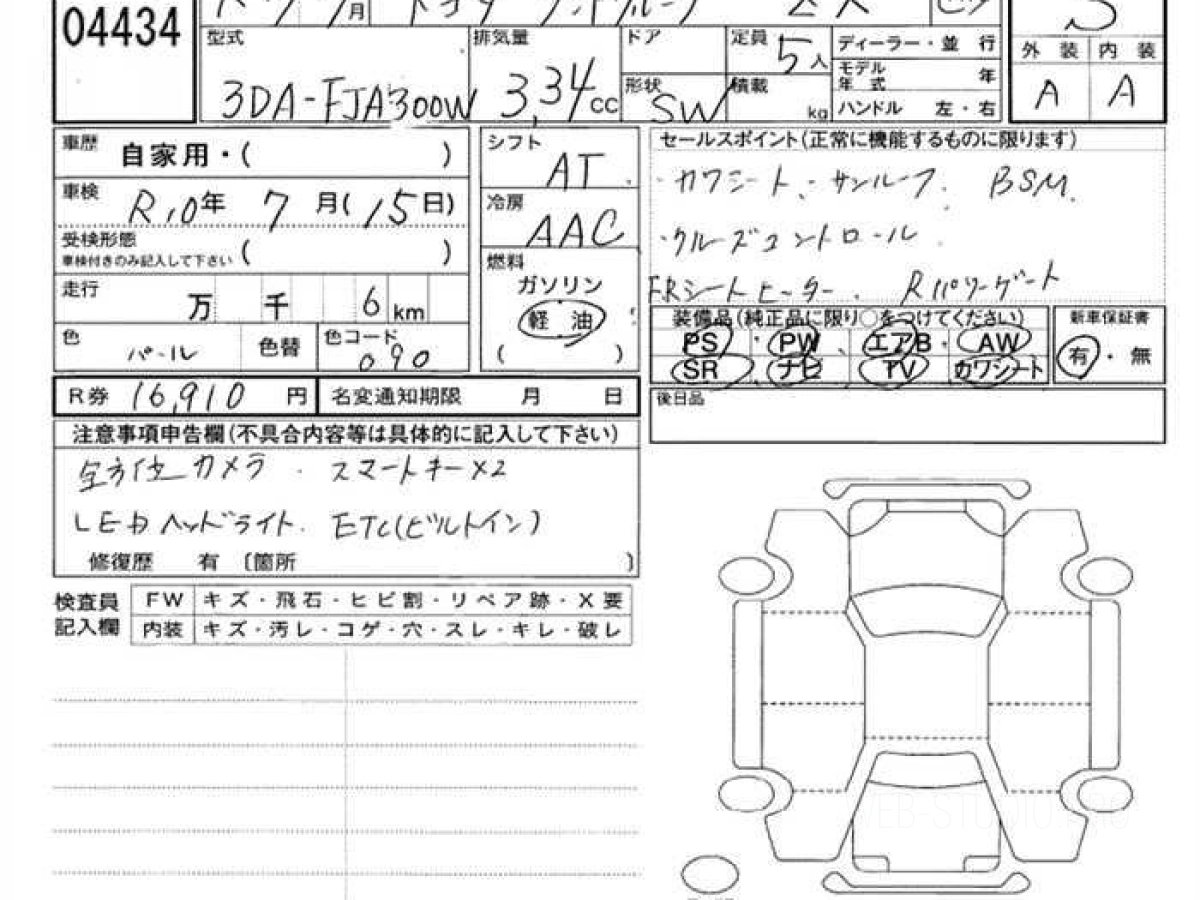 04434
月 トヨタ
S
型式 3DA-FJA300W
排気量 3,34 CC
ドア
形状 SW
定員 5人
積載 kg
ディーラー・並 行
モデル年式 年
ハンドル 左・右
外 装 内 装
A A
車歴 自家用・( )
車検 R10年 7月(15日)
受検形態
車検付きのみ記入して下さい ( )
走行 万 千 6 km
色 パール 色替 色コード 090
シフト AT
冷房 AAC
燃料
ガソリン
軽 油
( )
セールスポイント(正常に機能するものに限ります)
・カワシート・サンルーフ. BSM.
・クルーズコントロール.
FRシートヒーター. Rパワーゲート
装備品(純正品に限り○をつけてください)
PS・PW・エアB・AW
SR・ナビ・TV・カワシート
新車保証書
有・無
R券 16,910 円 名変通知期限 月 日
後日品
注意事項申告欄(不具合内容等は具体的に記入して下さい)
全方位カメラ . スマートキーX2
LEDヘッドライト. ETC(ビルトイン)
修復歴 有 〔箇所 〕
検査員記入欄
FW キズ・飛石・ヒビ割・リペア跡・X要
内装 キズ・汚レ・コゲ・穴・スレ・キレ・破レ